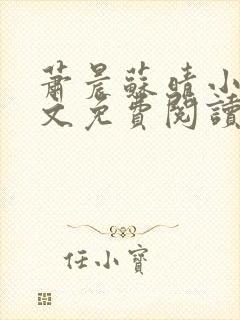 蕭晨蘇晴小
文免費閱讀
任小寶